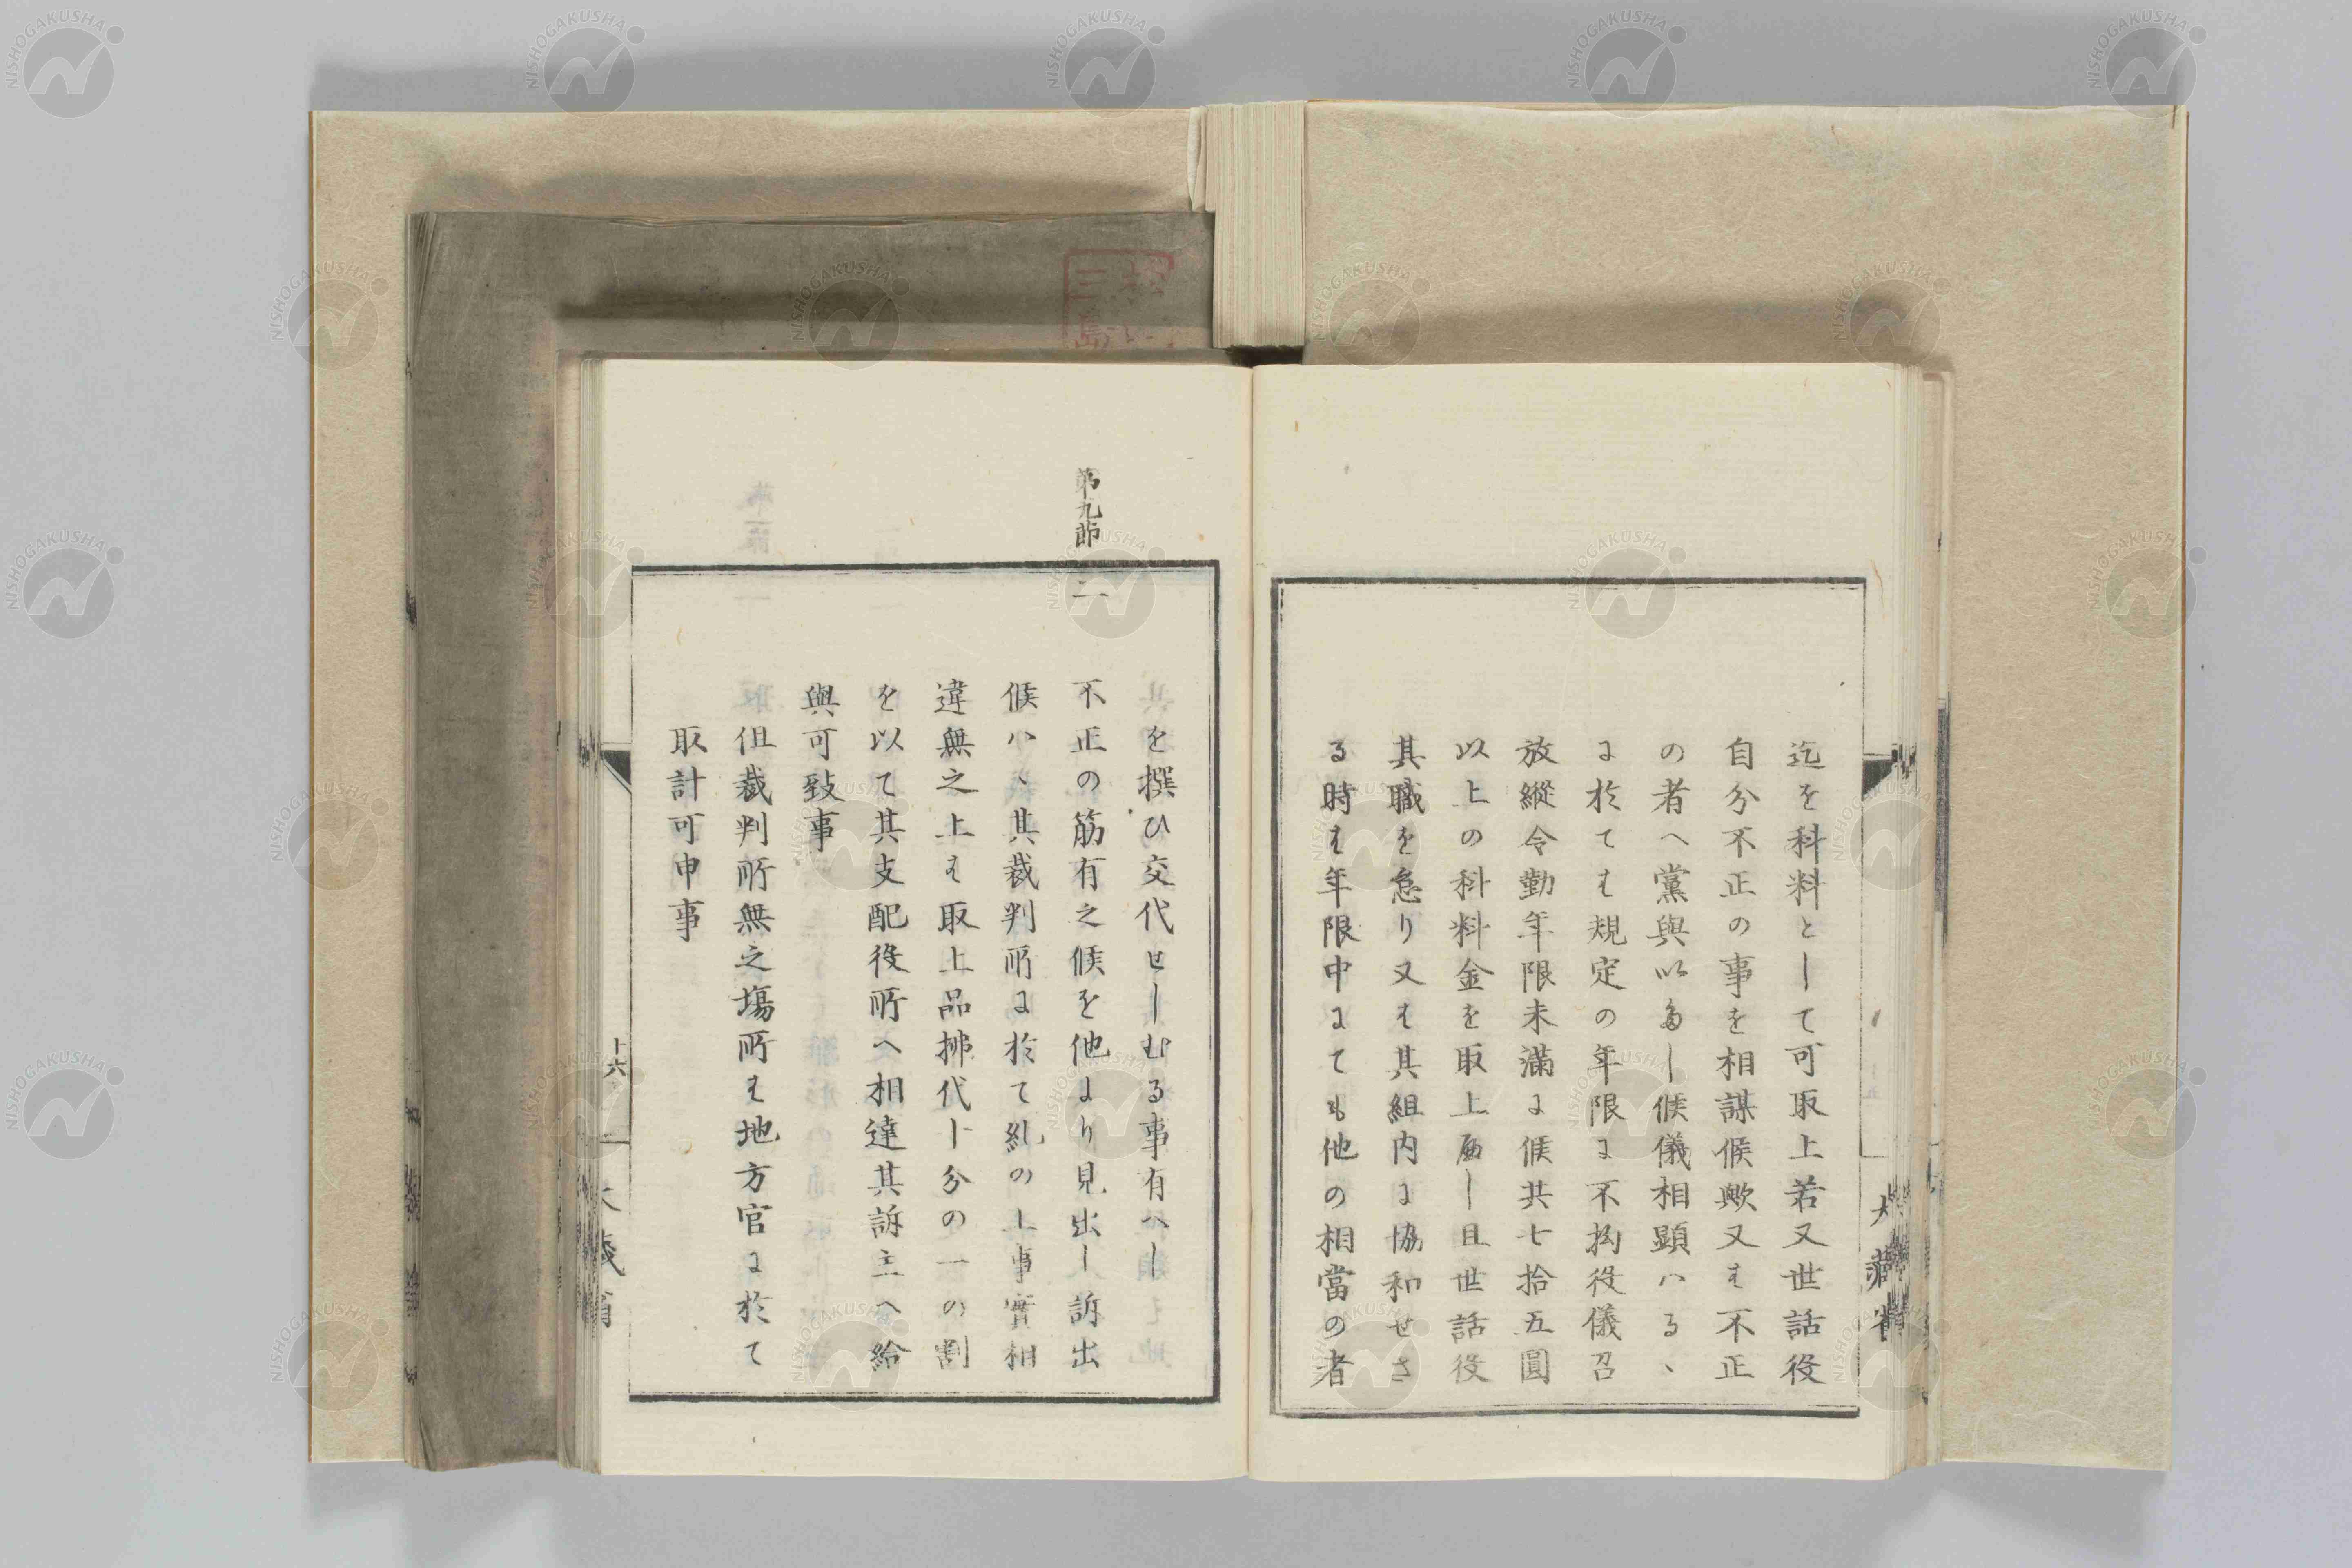 迄を科料として可取上若又世話役
自分不正の事を相謀候歟又は不正
の者へ黨與いたし候儀相顕ハるゝ
に於ては規定の年限に不拘役儀召
放縦令勤年限未満に候共七拾五圓
以上の科料金を取上べし且世話役
其職を怠り又は其組内に協和せさ
る時は年限中にても他の相當の者
大藏省
を撰ひ交代せしむる事有へし
第九節
一 不正の筋有之候を他より見出し訴出
候ハゝ其裁判所に於て糺の上事實相
違無之上は取上品拂代十分の一の割
を以て其支配役所へ相達其訴主へ給
與可致事
但裁判所無之場所は地方官に於て
取計可申事
十六
NISHOGAKUSHA